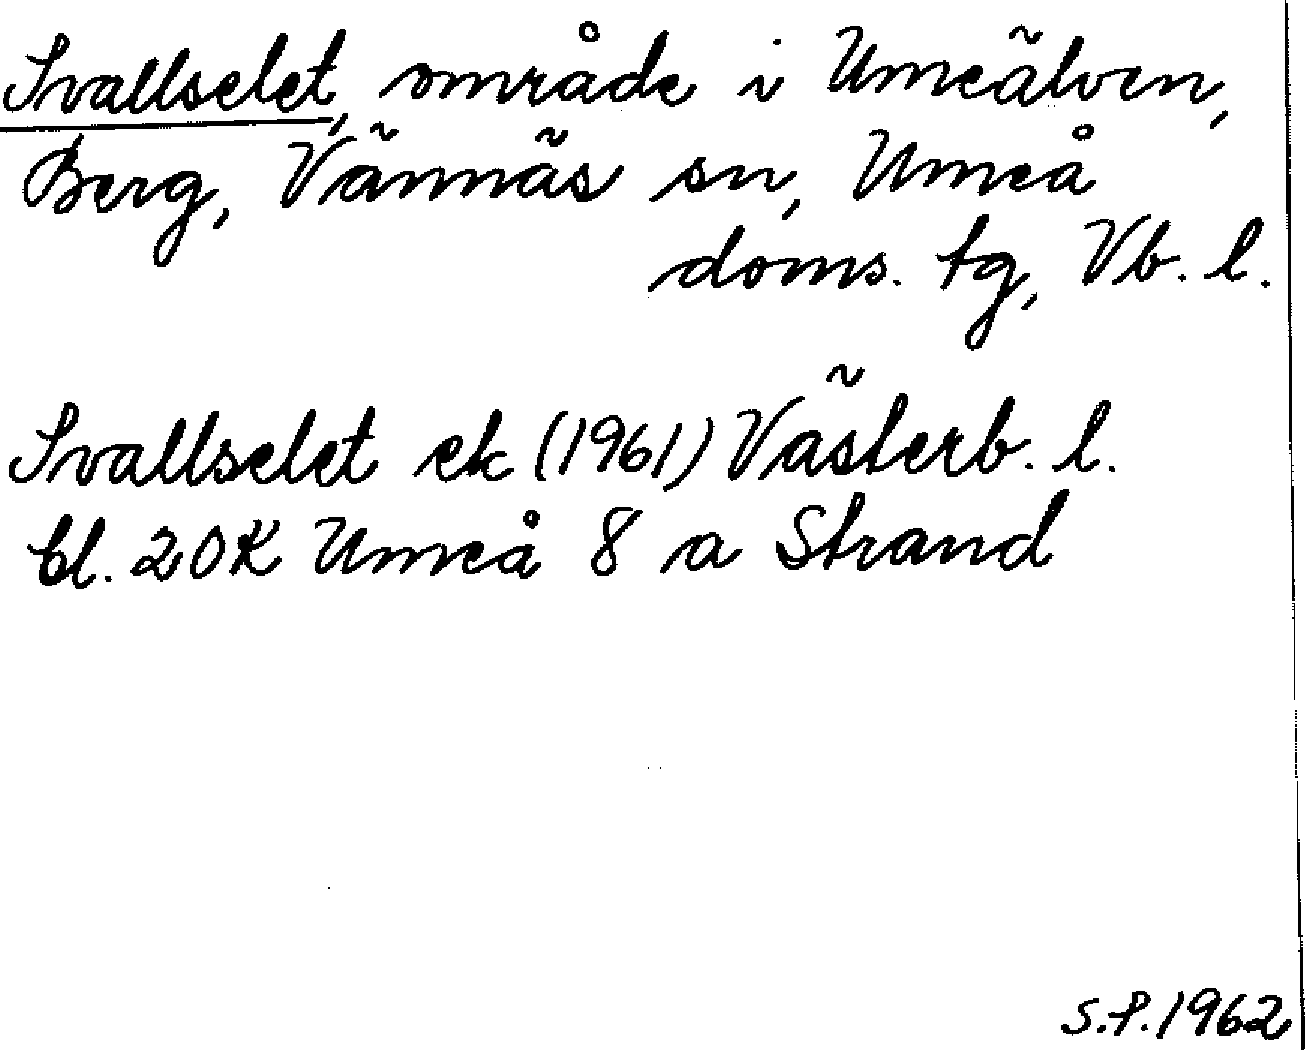 Svallselet, område i Umeälven,
Berg, Vännäs sn, Umeå
doms. tg, Vb. l.
Svallselet ek (1961) Västerb. l.
bl. 20K Umeå 8 a Strand
S.P. 1962